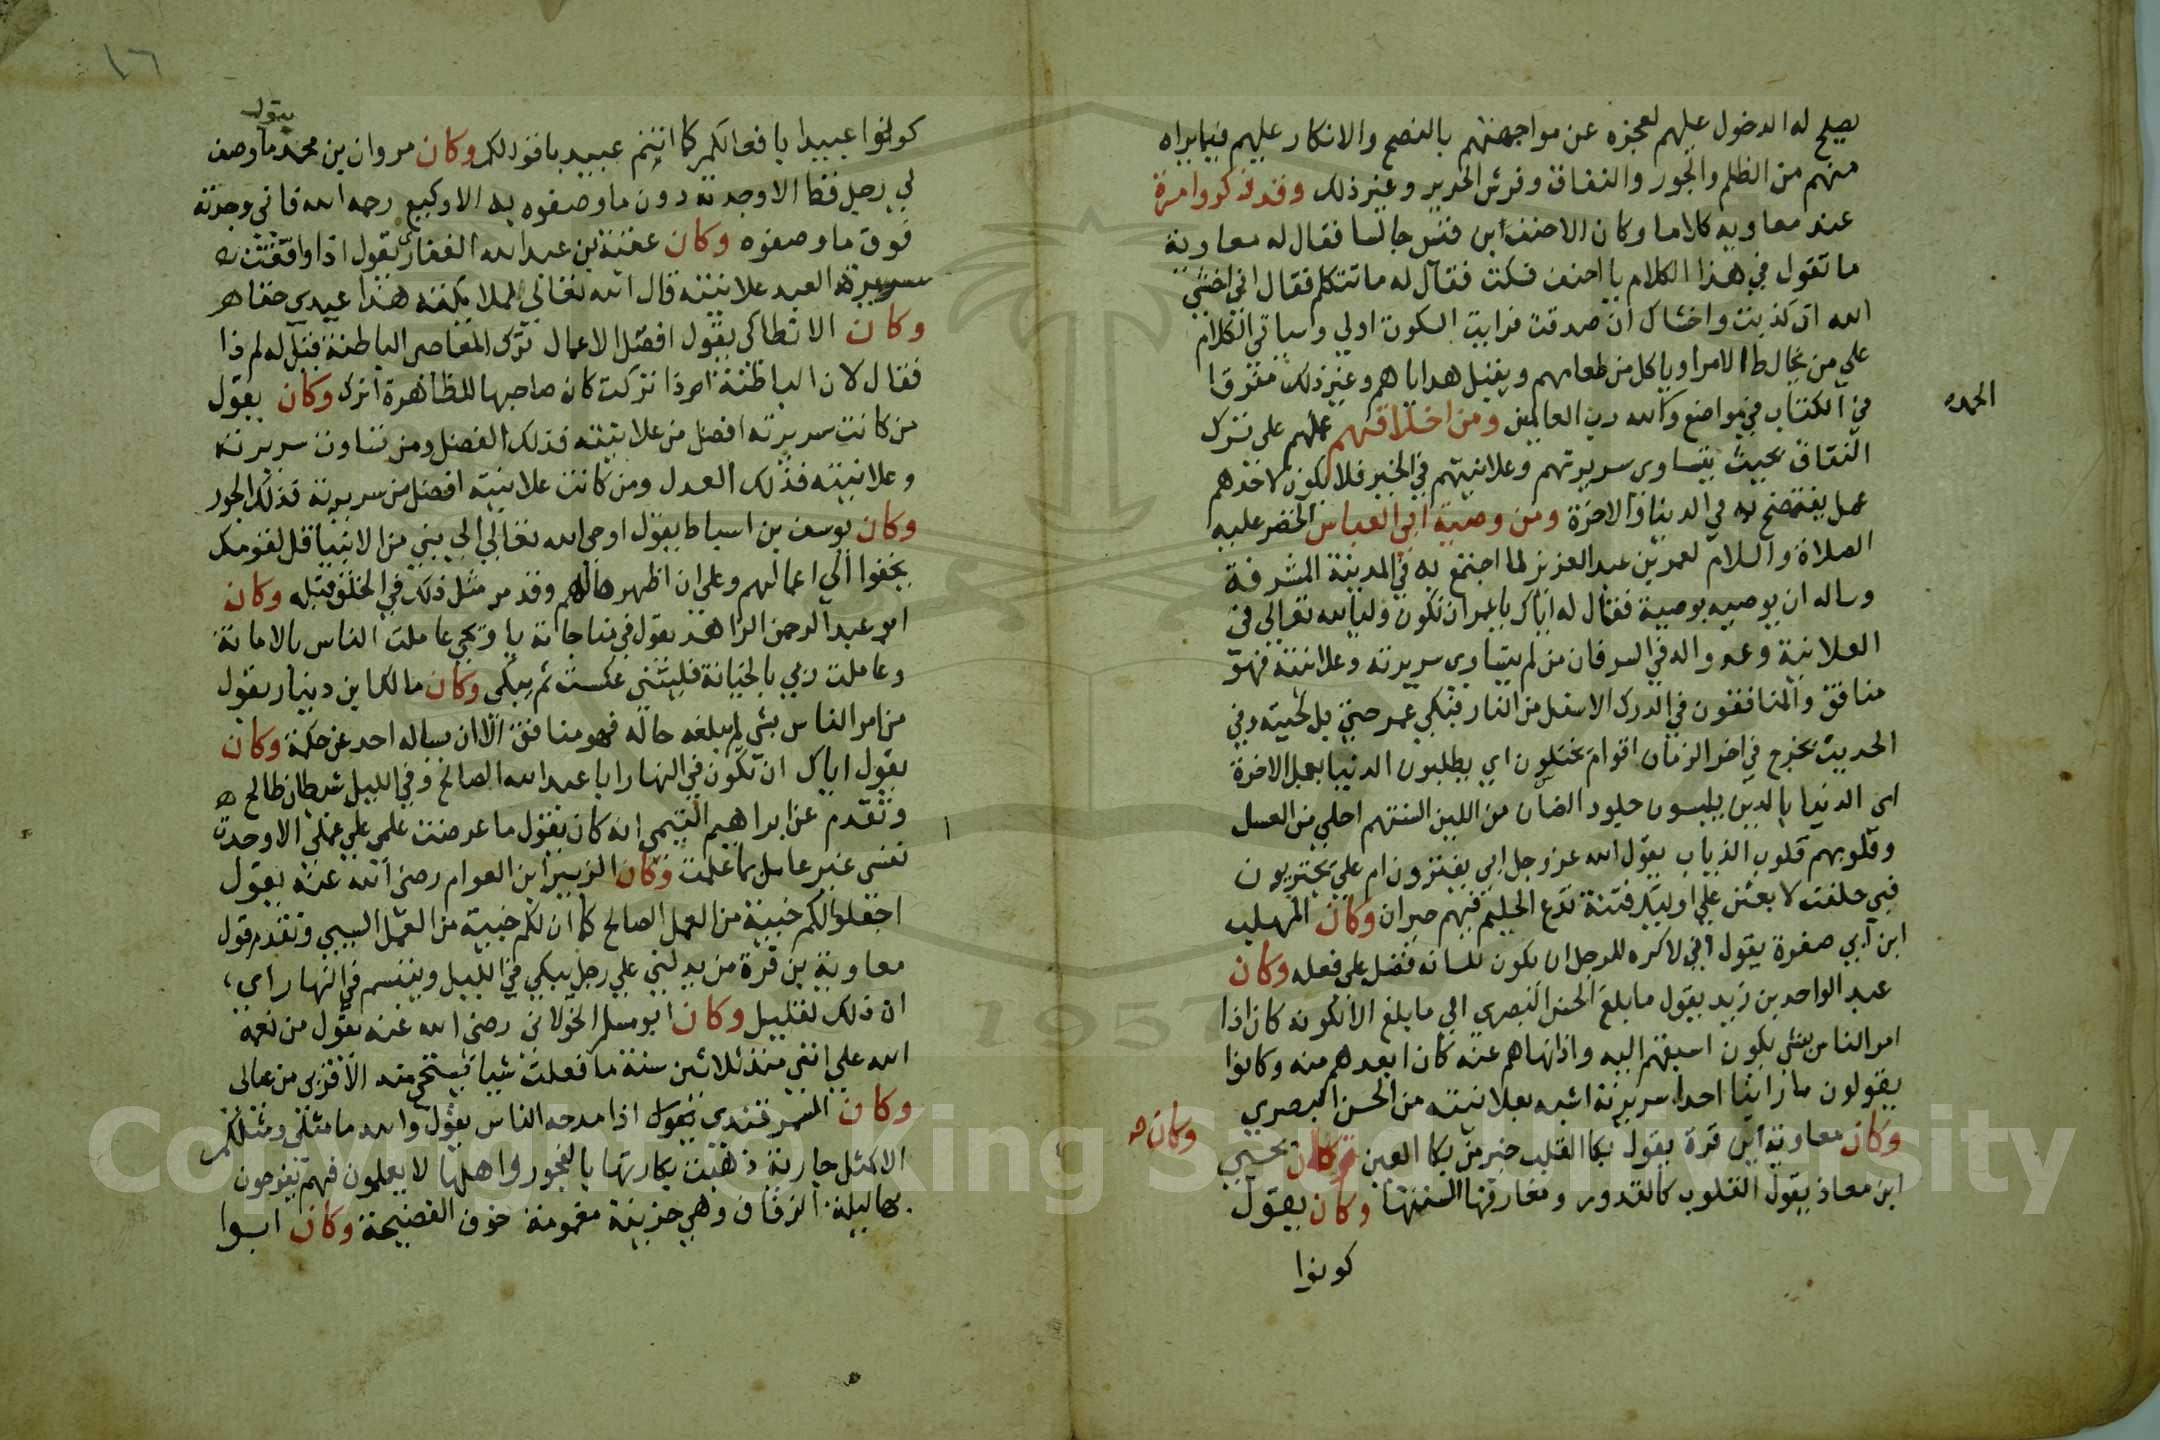 يصلح له الدخول عليهم لعجزه عن مواجهتهم بالنصح والانكار عليهم فيما يراه
منهم من الظلم والجور والنفاق وفرش الحرير وغير ذلك وقد ذكروا مرة
عند معاويه كلاما وكان الاحنف ابن قيس جالسا فقال له معاوية
ما تقول في هذا الكلام يا احنف فسكت فقال له ما تتكلم فقال اني اخشي
الله ان كذبت واخشاك ان صدقت فرايت السكوت اولي وسياتي الكلام
علي من يخالط الامرا وياكل من طعامهم ويقبل هداياهم وغير ذلك مفرقا
في الكتاب في مواضع والله رب العالمين ومن اخلاقهم عملهم على ترك
الحمد
النفاق بحيث يتساوى سريرتهم وعلانيتهم في الخير فلا يكون لاحدهم
عمل يفتضح به في الدنيا والاخرة ومن وصية ابي العباس الخضر عليه
الصلاة والسلام لعمر بن عبد العزيز لما اجتمع به في المدينة المشرفة
وساله ان يوصيه بوصية فقال له اياك يا عمر ان تكون وليا لله تعالي في
العلانية وعدو اله في السر فان من لم يتساوى سريرته وعلانيته فهو
منافق والمنافقون في الدرك الاسفل من النار فبكي عمر حتي بل لحيته وفي
الحديث يخرج في اخر الزمان اقوام يختلون اي يطلبون الدنيا بعمل الاخرة
اى الدنيا بالدين يلبسون جلود الضان من اللين السنتهم احلي من العسل
وقلوبهم قلوب الذياب يقول الله عز وجل ابي يغترون ام علي يجتريون
فبي حلفت لابعثن علي اوليك فتنة تدع الحليم فيهم حيران وكان المهلب
ابن ابي صفرة يقول اني لاكره للرجل ان يكون للسانه فضل على فعله وكان
عبد الواحد بن زيد يقول ما بلغ الحسن البصري الي ما بلغ الا لكونه كان اذا
امر الناس بشي يكون اسبقهم اليه واذا نهاهم عنه كان ابعدهم منه وكانوا
يقولون ما راينا احدا سريرته اشبه بعلانيته من الحسن البصري
وكان معاوية ابن قرة يقول بكا القلب خير من بكا العين وكان يحيي
وكان
ابن معاذ يقول القلوب كالقدور ومغارفها السنتها وكان يقول
كونوا
١٦
كونوا عبيدا بافعالكم كما انتم عبيد باقوالكم وكان مروان بن محمد يقول ما وصف
لي رجل قط الا وجدته دون ما وصفوه به الا وكيع رحمه الله فاني وجدته
فوق ما وصفوه وكان عقبة بن عبد الله الغفارى يقول اذا وافقت
سريرة العبد علانيته قال الله تعالي لملايكته هذا عبدي حقا
وكان الانطاكى يقول افضل الاعمال ترك المعاصى الباطنة فقيل له لم ذا
فقال لان الباطنة اذا تركت كان صاحبها للظاهرة اترك وكان يقول
من كانت سريرته افضل من علانيته فذلك الفضل ومن تساوت سريرته
وعلانيته فذلك العدل ومن كانت علانيته افضل من سريرته فذلك الجور
وكان يوسف بن اسباط يقول اوحى الله تعالي الي نبي من الانبيا قل لقومك
يخفوا الي اعمالهم وعلي ان اظهرها لهم وقد مر مثل ذلك في الخلق قبله وكان
ابو عبد الرحمن الزاهد يقول في مناجاته يا ويحي عاملت الناس بالامانة
وعاملت ربي بالخيانة فليتني عكست ثم يبكى وكان مالك ابن دينار يقول
من امر الناس بشي لم يبلغه حاله فهو منافق الا ان يساله احد عن حكمة وكان
يقول اياك ان تكون في النهار ابا عبد الله الصالح وفي الليل شيطان طالح
وتقدم عن ابراهيم التيمي انه كان يقول ما عرضت علمي علي عملي الا وجدت
نفسى غير عامل بما علمت وكان الزبير ابن العوام رضى الله عنه يقول
اجعلوا لكم خبية من العمل الصالح كما ان لكم خبية من العمل السيي وتقدم قول
معاوية بن قرة من يدلني علي رجل يبكي في الليل ويبتسم في النهار اى
ان ذلك لقليل وكان ابو مسلم الخولاني رضى الله عنه يقول من نعمة
الله علي انني منذ ثلاثين سنة ما فعلت شيا يستحي منه الا قربى من عيالى
وكان السمرقندى يقول اذا مدحه الناس يقول والله ما مثلى ومثلكم
الا كمثل جارية ذهبت بكارتها بالفجور واهلها لا يعلمون فهم يفرحون
بها ليلة الزفاف وهي حزينة مغمومة خوف الفضيحة وكان ابوا
Copyright © King Saud University
1957